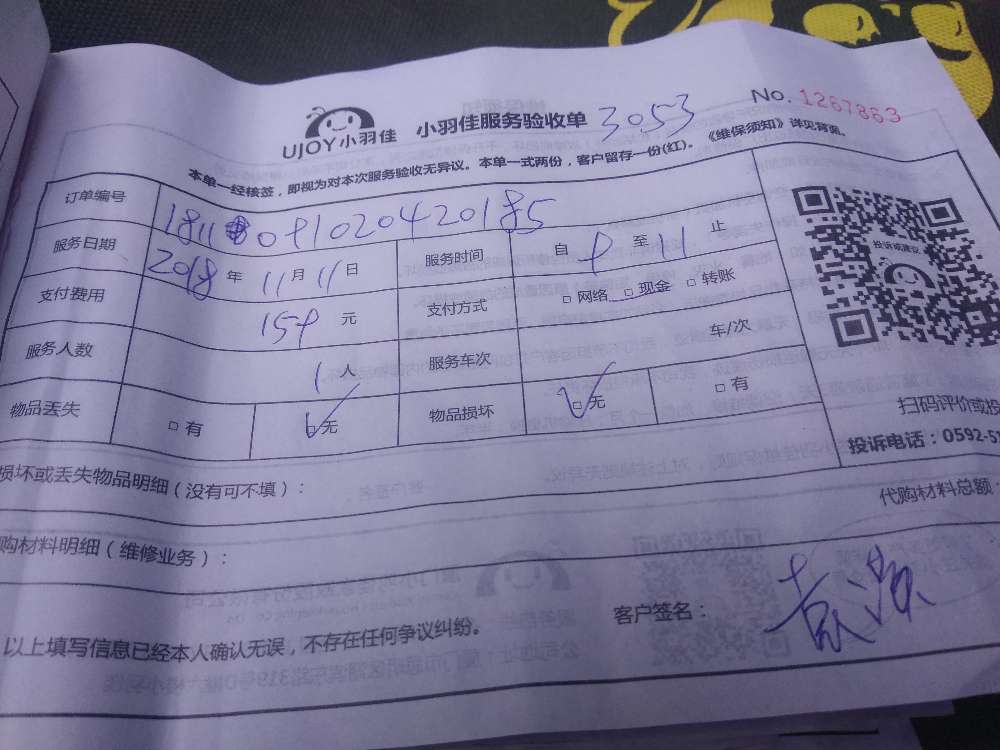 No. 1267863
UJOY小羽佳 小羽佳服务验收单 3053
本单一经核签，即视为对本次服务验收无异议。本单一式两份，客户留存一份(红)。《维保须知》详见背面。
订单编号 1811 09102042 0185
服务日期 2018 年 11 月 11 日 服务时间 自 9 至 11 止
支付费用 159 元 支付方式 □ 网络 □ 现金 □ 转账
服务人数 1 人 服务车次 车/次
物品丢失 □ 有 □ 无 物品损坏 □ 无 □ 有
投诉或建议
扫码评价或投
投诉电话：0592-5
损坏或丢失物品明细（没有可不填）：
代购材料总额：
购材料明细（维修业务）：
以上填写信息已经本人确认无误，不存在任何争议纠纷。
客户签名：